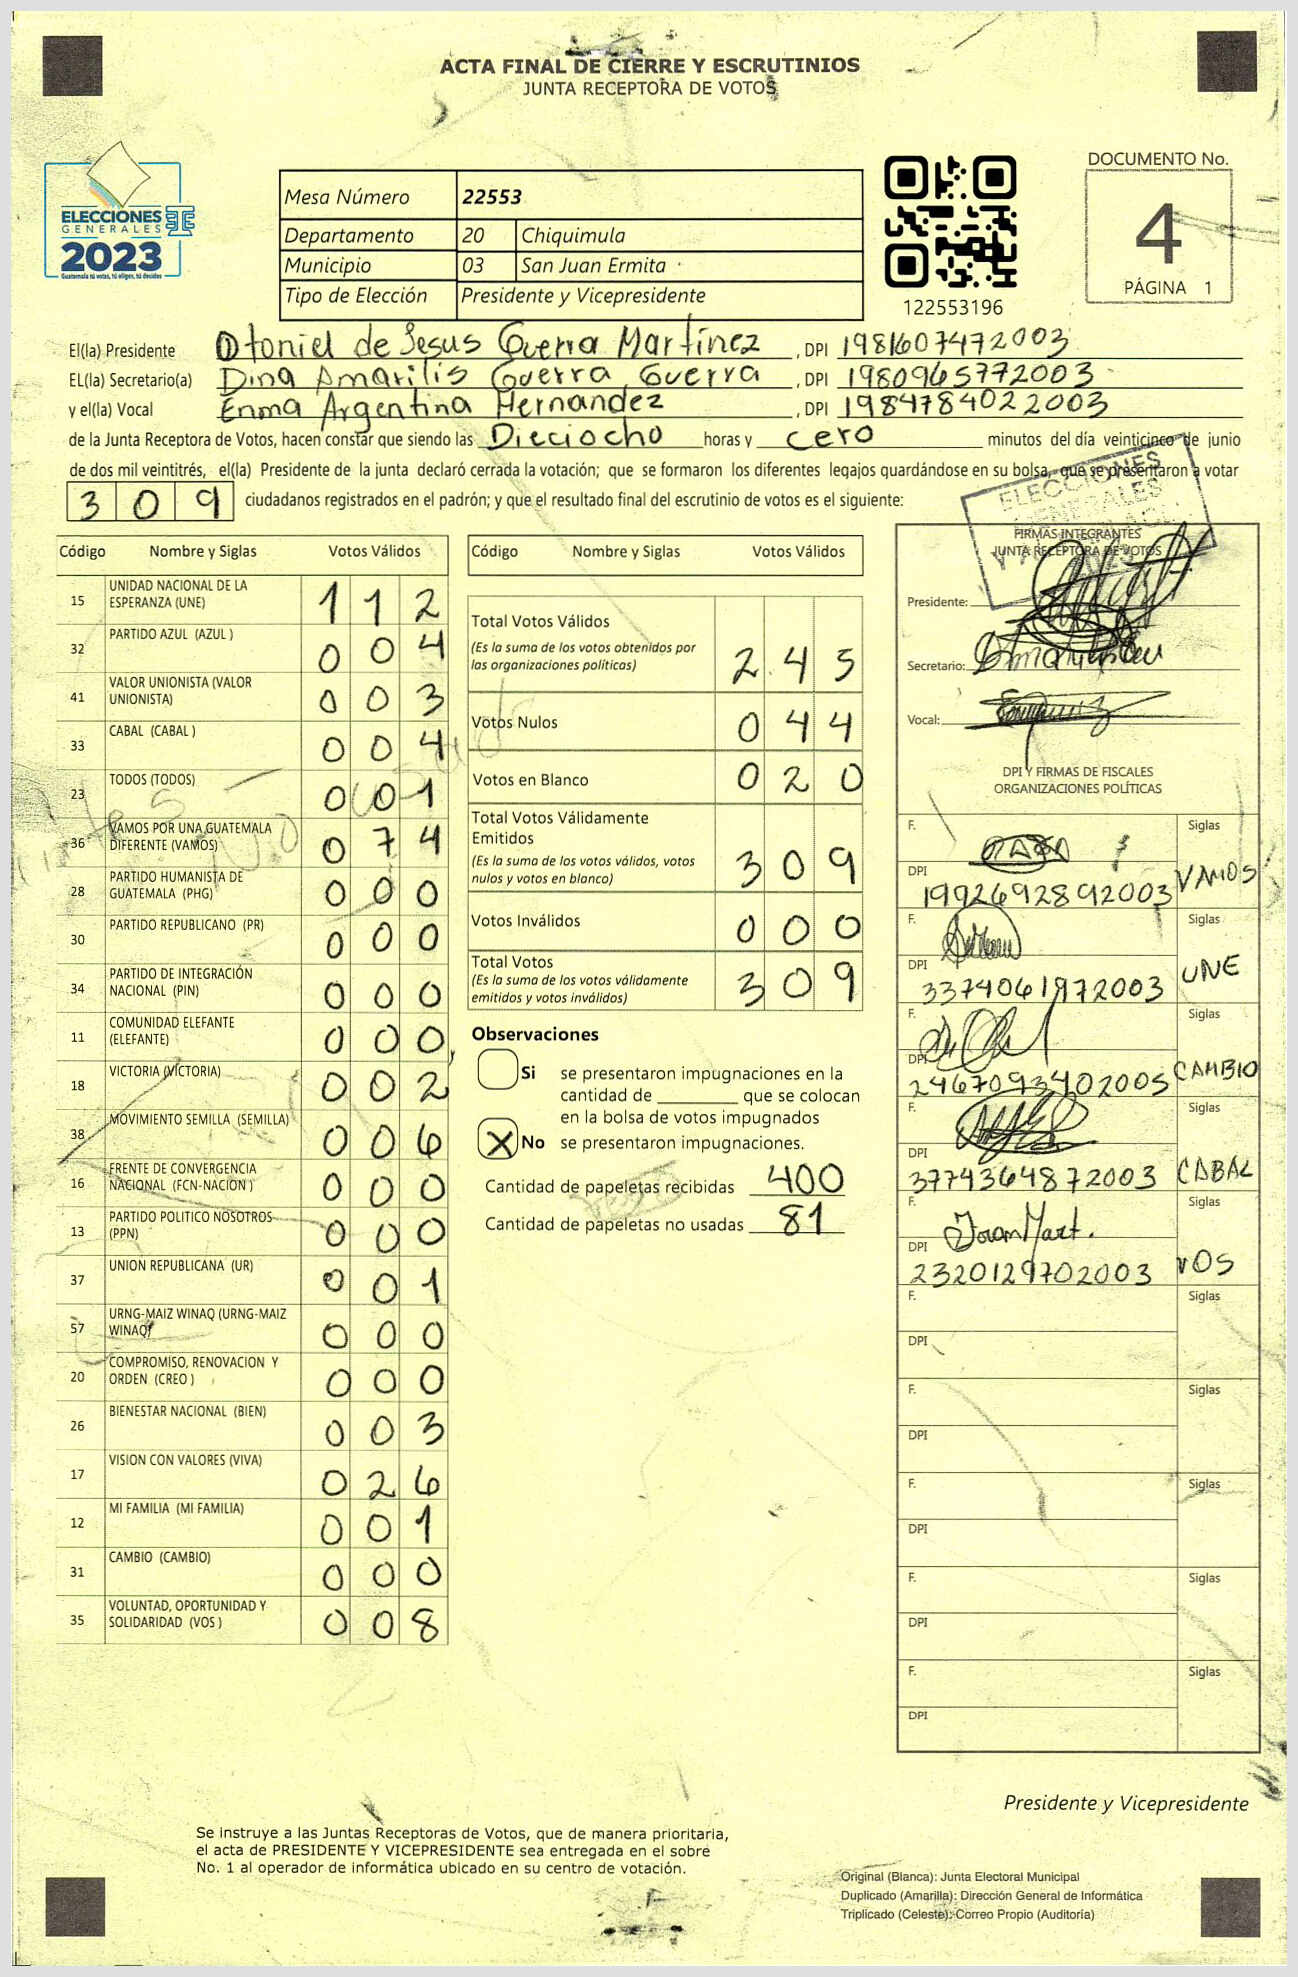 ACTA FINAL DE CIERRE Y ESCRUTINIOS
JUNTA RECEPTORA DE VOTOS
ELECCIONES
GENERALES
2023
Guatemala tú votas, tú eliges, tú decides
Mesa Número 22553
Departamento 20 Chiquimula
Municipio 03 San Juan Ermita
Tipo de Elección Presidente y Vicepresidente
122553196
DOCUMENTO No.
4
PÁGINA 1
El(la) Presidente Otoniel de Jesus Guerra Martínez, DPI 1981607472003
EL(la) Secretario(a) Dina Amarilis Guerra Guerra, DPI 1980965772003
y el(la) Vocal Enma Argentina Hernandez, DPI 1984784022003
de la Junta Receptora de Votos, hacen constar que siendo las Dieciocho horas y cero minutos del día veinticinco de junio
de dos mil veintitrés, el(la) Presidente de la junta declaró cerrada la votación; que se formaron los diferentes legajos quardándose en su bolsa, que se presentaron a votar
309 ciudadanos registrados en el padrón; y que el resultado final del escrutinio de votos es el siguiente:
Código Nombre y Siglas Votos Válidos
15 UNIDAD NACIONAL DE LA ESPERANZA (UNE) 112
32 PARTIDO AZUL (AZUL ) 004
41 VALOR UNIONISTA (VALOR UNIONISTA) 003
33 CABAL (CABAL ) 004
23 TODOS (TODOS) 001
36 VAMOS POR UNA GUATEMALA DIFERENTE (VAMOS) 074
28 PARTIDO HUMANISTA DE GUATEMALA (PHG) 000
30 PARTIDO REPUBLICANO (PR) 000
34 PARTIDO DE INTEGRACIÓN NACIONAL (PIN) 000
11 COMUNIDAD ELEFANTE (ELEFANTE) 000
18 VICTORIA (VICTORIA) 002
38 MOVIMIENTO SEMILLA (SEMILLA) 006
16 FRENTE DE CONVERGENCIA NACIONAL (FCN-NACION ) 000
13 PARTIDO POLITICO NOSOTROS (PPN) 000
37 UNION REPUBLICANA (UR) 001
57 URNG-MAIZ WINAQ (URNG-MAIZ WINAQ) 000
20 COMPROMISO, RENOVACION Y ORDEN (CREO ) 000
26 BIENESTAR NACIONAL (BIEN) 003
17 VISION CON VALORES (VIVA) 026
12 MI FAMILIA (MI FAMILIA) 001
31 CAMBIO (CAMBIO) 000
35 VOLUNTAD, OPORTUNIDAD Y SOLIDARIDAD (VOS ) 008
Código Nombre y Siglas Votos Válidos
Total Votos Válidos
(Es la suma de los votos obtenidos por
las organizaciones políticas) 245
Votos Nulos 044
Votos en Blanco 020
Total Votos Válidamente
Emitidos
(Es la suma de los votos válidos, votos
nulos y votos en blanco) 309
Votos Inválidos 000
Total Votos
(Es la suma de los votos válidamente
emitidos y votos inválidos) 309
Observaciones
Si se presentaron impugnaciones en la
cantidad de ________ que se colocan
en la bolsa de votos impugnados
X No se presentaron impugnaciones.
Cantidad de papeletas recibidas 400
Cantidad de papeletas no usadas 81
ELECCIONES
GENERALES
FIRMAS INTEGRANTES
JUNTA RECEPTORA DE VOTOS
Presidente:
Secretario:
Vocal:
DPI Y FIRMAS DE FISCALES
ORGANIZACIONES POLÍTICAS
F. Siglas
DPI 1992692892003 VAMOS
F. Siglas
DPI 3374061972003 UNE
F. Siglas
DPI 2467093402005 CAMBIO
F. Siglas
DPI 3774364872003 CABAL
F. Siglas
DPI 2320129702003 VOS
F. Siglas
DPI
F. Siglas
DPI
F. Siglas
DPI
F. Siglas
DPI
F. Siglas
DPI
Presidente y Vicepresidente
Se instruye a las Juntas Receptoras de Votos, que de manera prioritaria,
el acta de PRESIDENTE Y VICEPRESIDENTE sea entregada en el sobre
No. 1 al operador de informática ubicado en su centro de votación.
Original (Blanca): Junta Electoral Municipal
Duplicado (Amarilla): Dirección General de Informática
Triplicado (Celeste): Correo Propio (Auditoría)